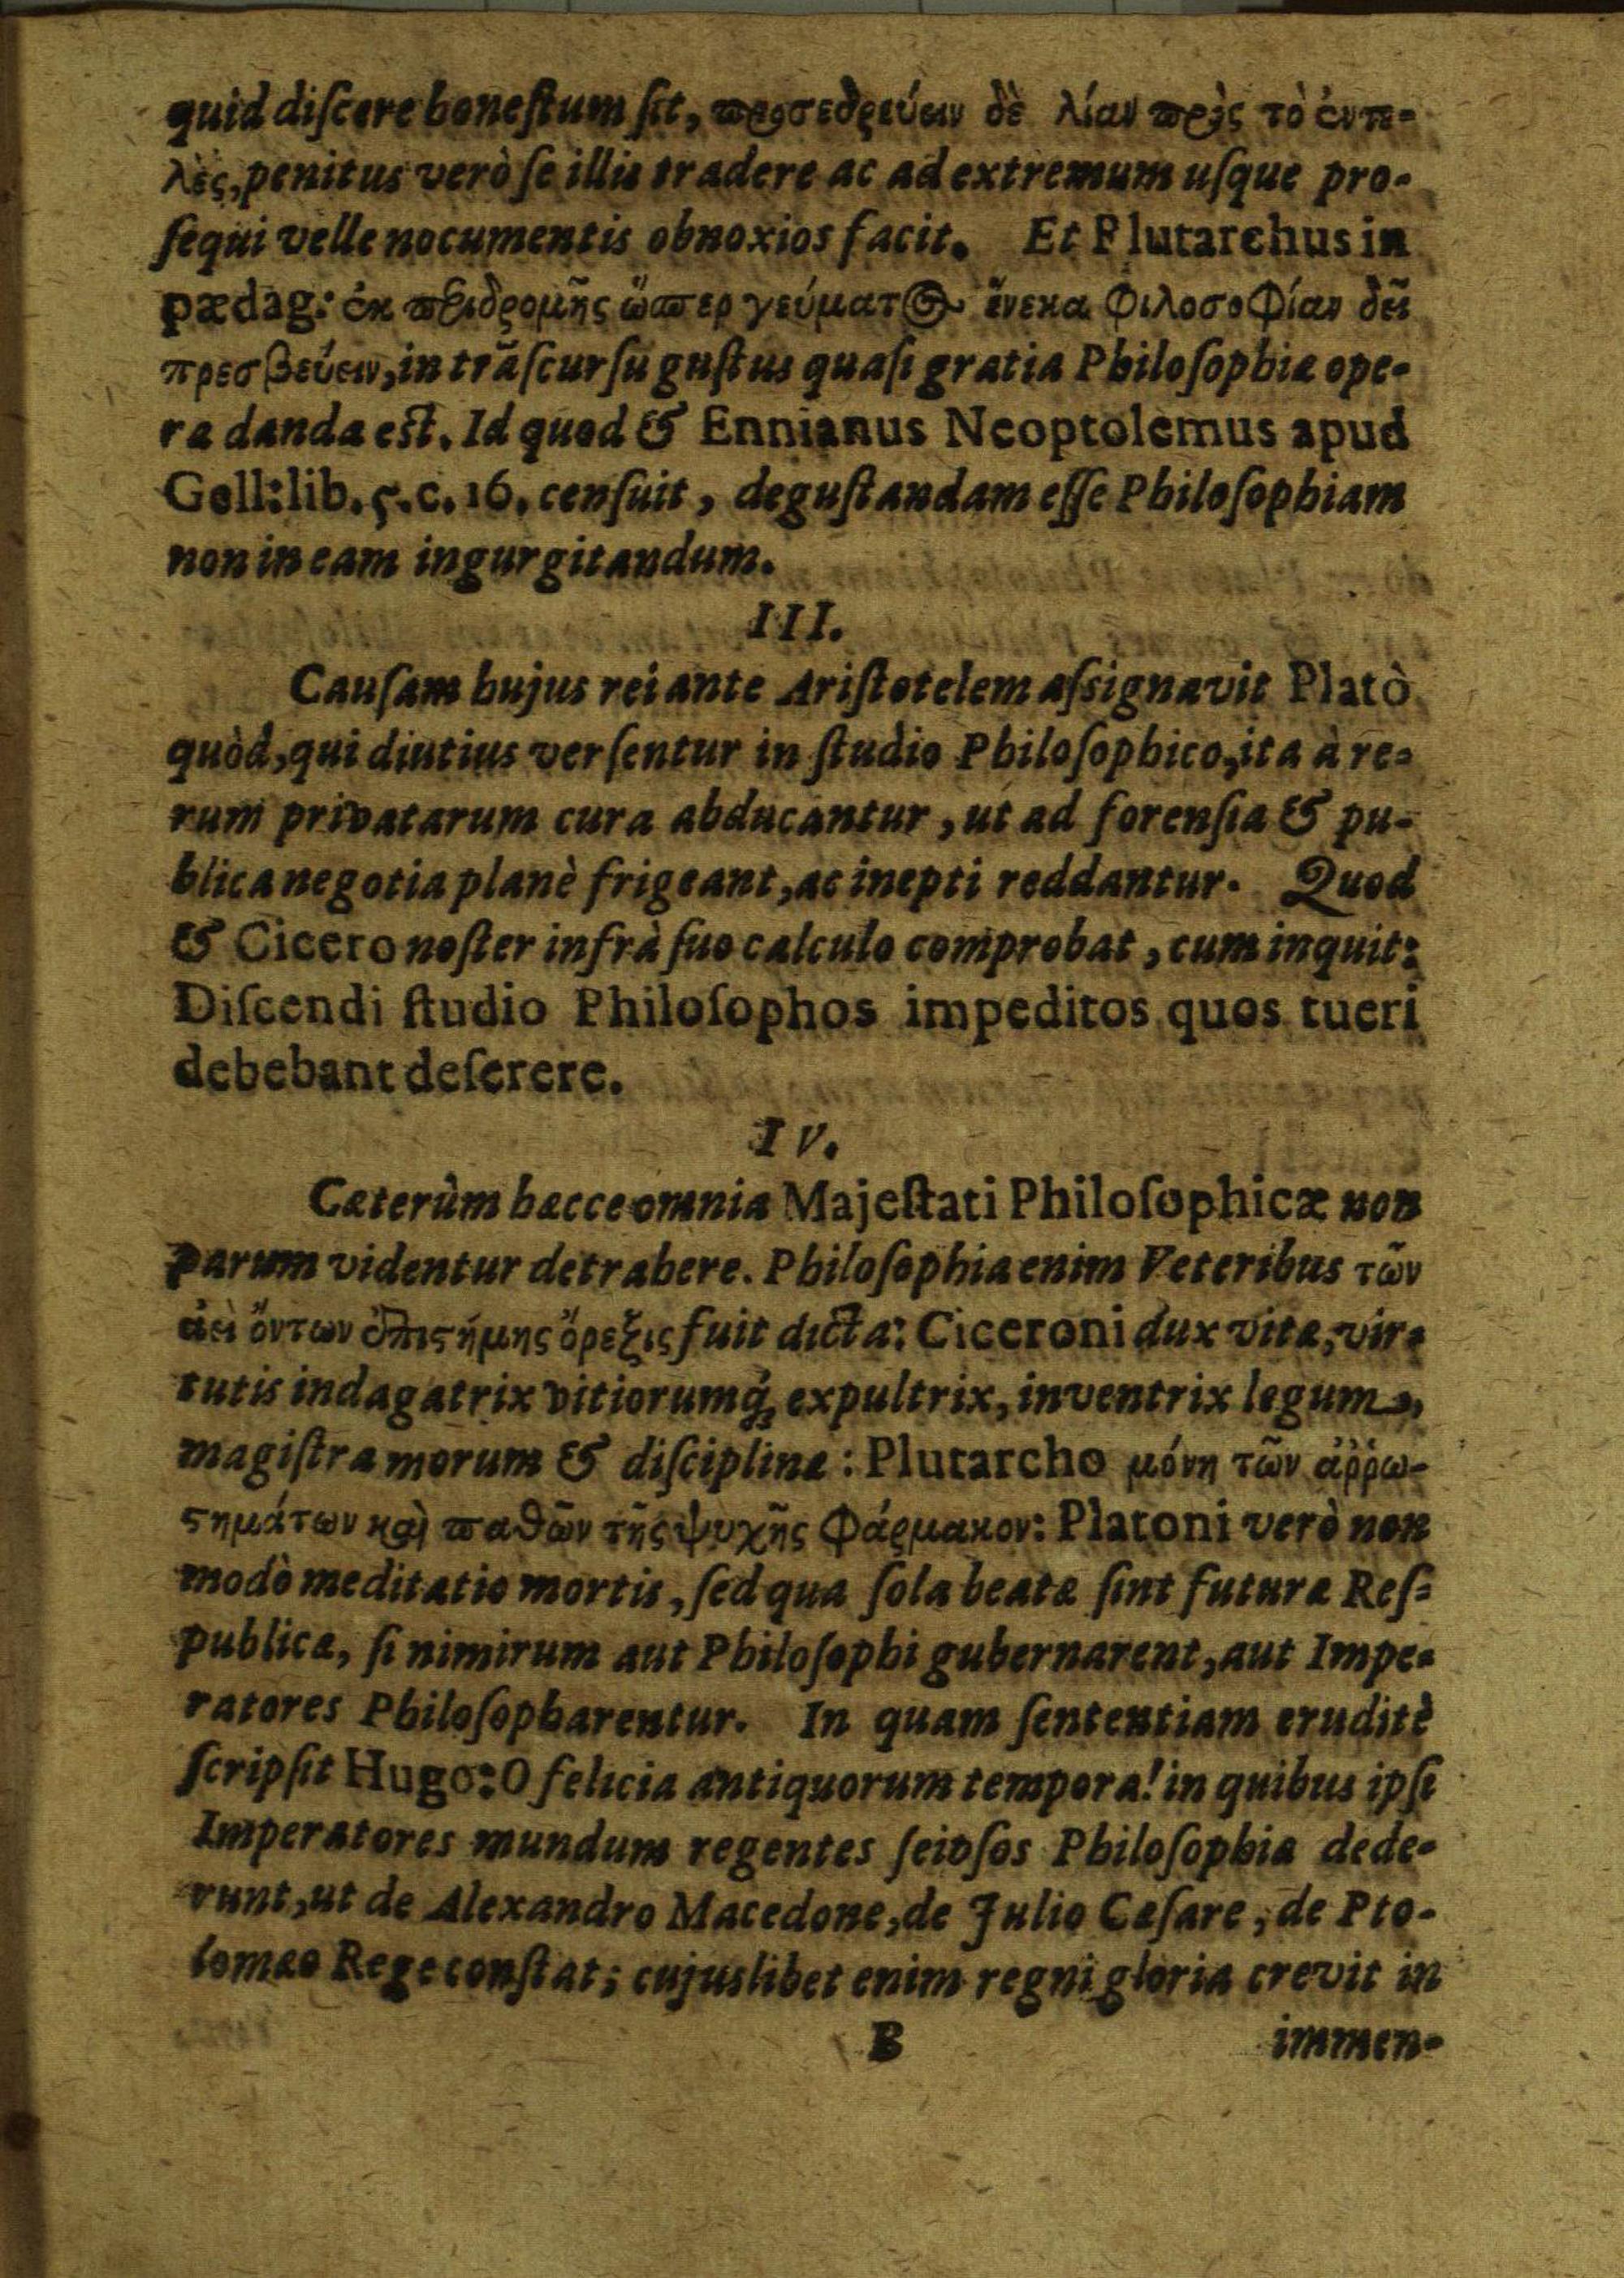 quid diſcere honeſtum ſit, προσεδρεύειν δὲ λίαν πρὸς τὸ ἐντε-
λὲς, penitus verò ſe illis tradere ac ad extremum uſque pro-
ſequi velle nocumentis obnoxios facit. Et Plutarchus in
pædag: ἐκ περιδρομῆς ὥσπερ γεύματος ἕνεκα φιλοσοφίαν δεῖ
πρεσβεύειν, in trãſcurſu guſtus quaſi gratia Philoſophiæ ope-
ra danda eſt. Id quod & Ennianus Neoptolemus apud
Gell: lib. 5. c. 16. cenſuit, deguſtandam eſſe Philoſophiam
non in eam ingurgitandum.
III.
Cauſam hujus rei ante Ariſtotelem aſsignavit Platò
quòd, qui diutius verſentur in ſtudio Philoſophico, ita à re-
rum privatarum cura abducantur, ut ad forenſia & pu-
blica negotia planè frigeant, ac inepti reddantur. Quod
& Cicero noſter infrà ſuo calculo comprobat, cum inquit:
Diſcendi ſtudio Philoſophos impeditos quos tueri
debebant deſerere.
IV.
Cæterùm hæcce omnia Majeſtati Philoſophicæ non
parum videntur detrahere. Philoſophia enim Veteribus τῶν
ἀεὶ ὄντων ἐπιςήμης ὄρεξις fuit dicta: Ciceroni dux vitæ, vir-
tutis indagatrix vitiorumq́; expultrix, inventrix legum,
magiſtra morum & diſciplinæ: Plutarcho μόνη τῶν ἀῤῥω-
ςημάτων καὶ παθῶν τῆς ψυχῆς φάρμακον: Platoni verò non
modò meditatio mortis, ſed qua ſola beatæ ſint futuræ Reſ-
publicæ, ſi nimirum aut Philoſophi gubernarent, aut Impe-
ratores Philoſopharentur. In quam ſententiam eruditè
ſcripſit Hugo: O felicia antiquorum tempora! in quibus ipſi
Imperatores mundum regentes ſeipſos Philoſophiæ dede-
runt, ut de Alexandro Macedone, de Julio Cæſare, de Pto-
lomæo Rege conſtat; cujuslibet enim regni gloria crevit in
B immen-